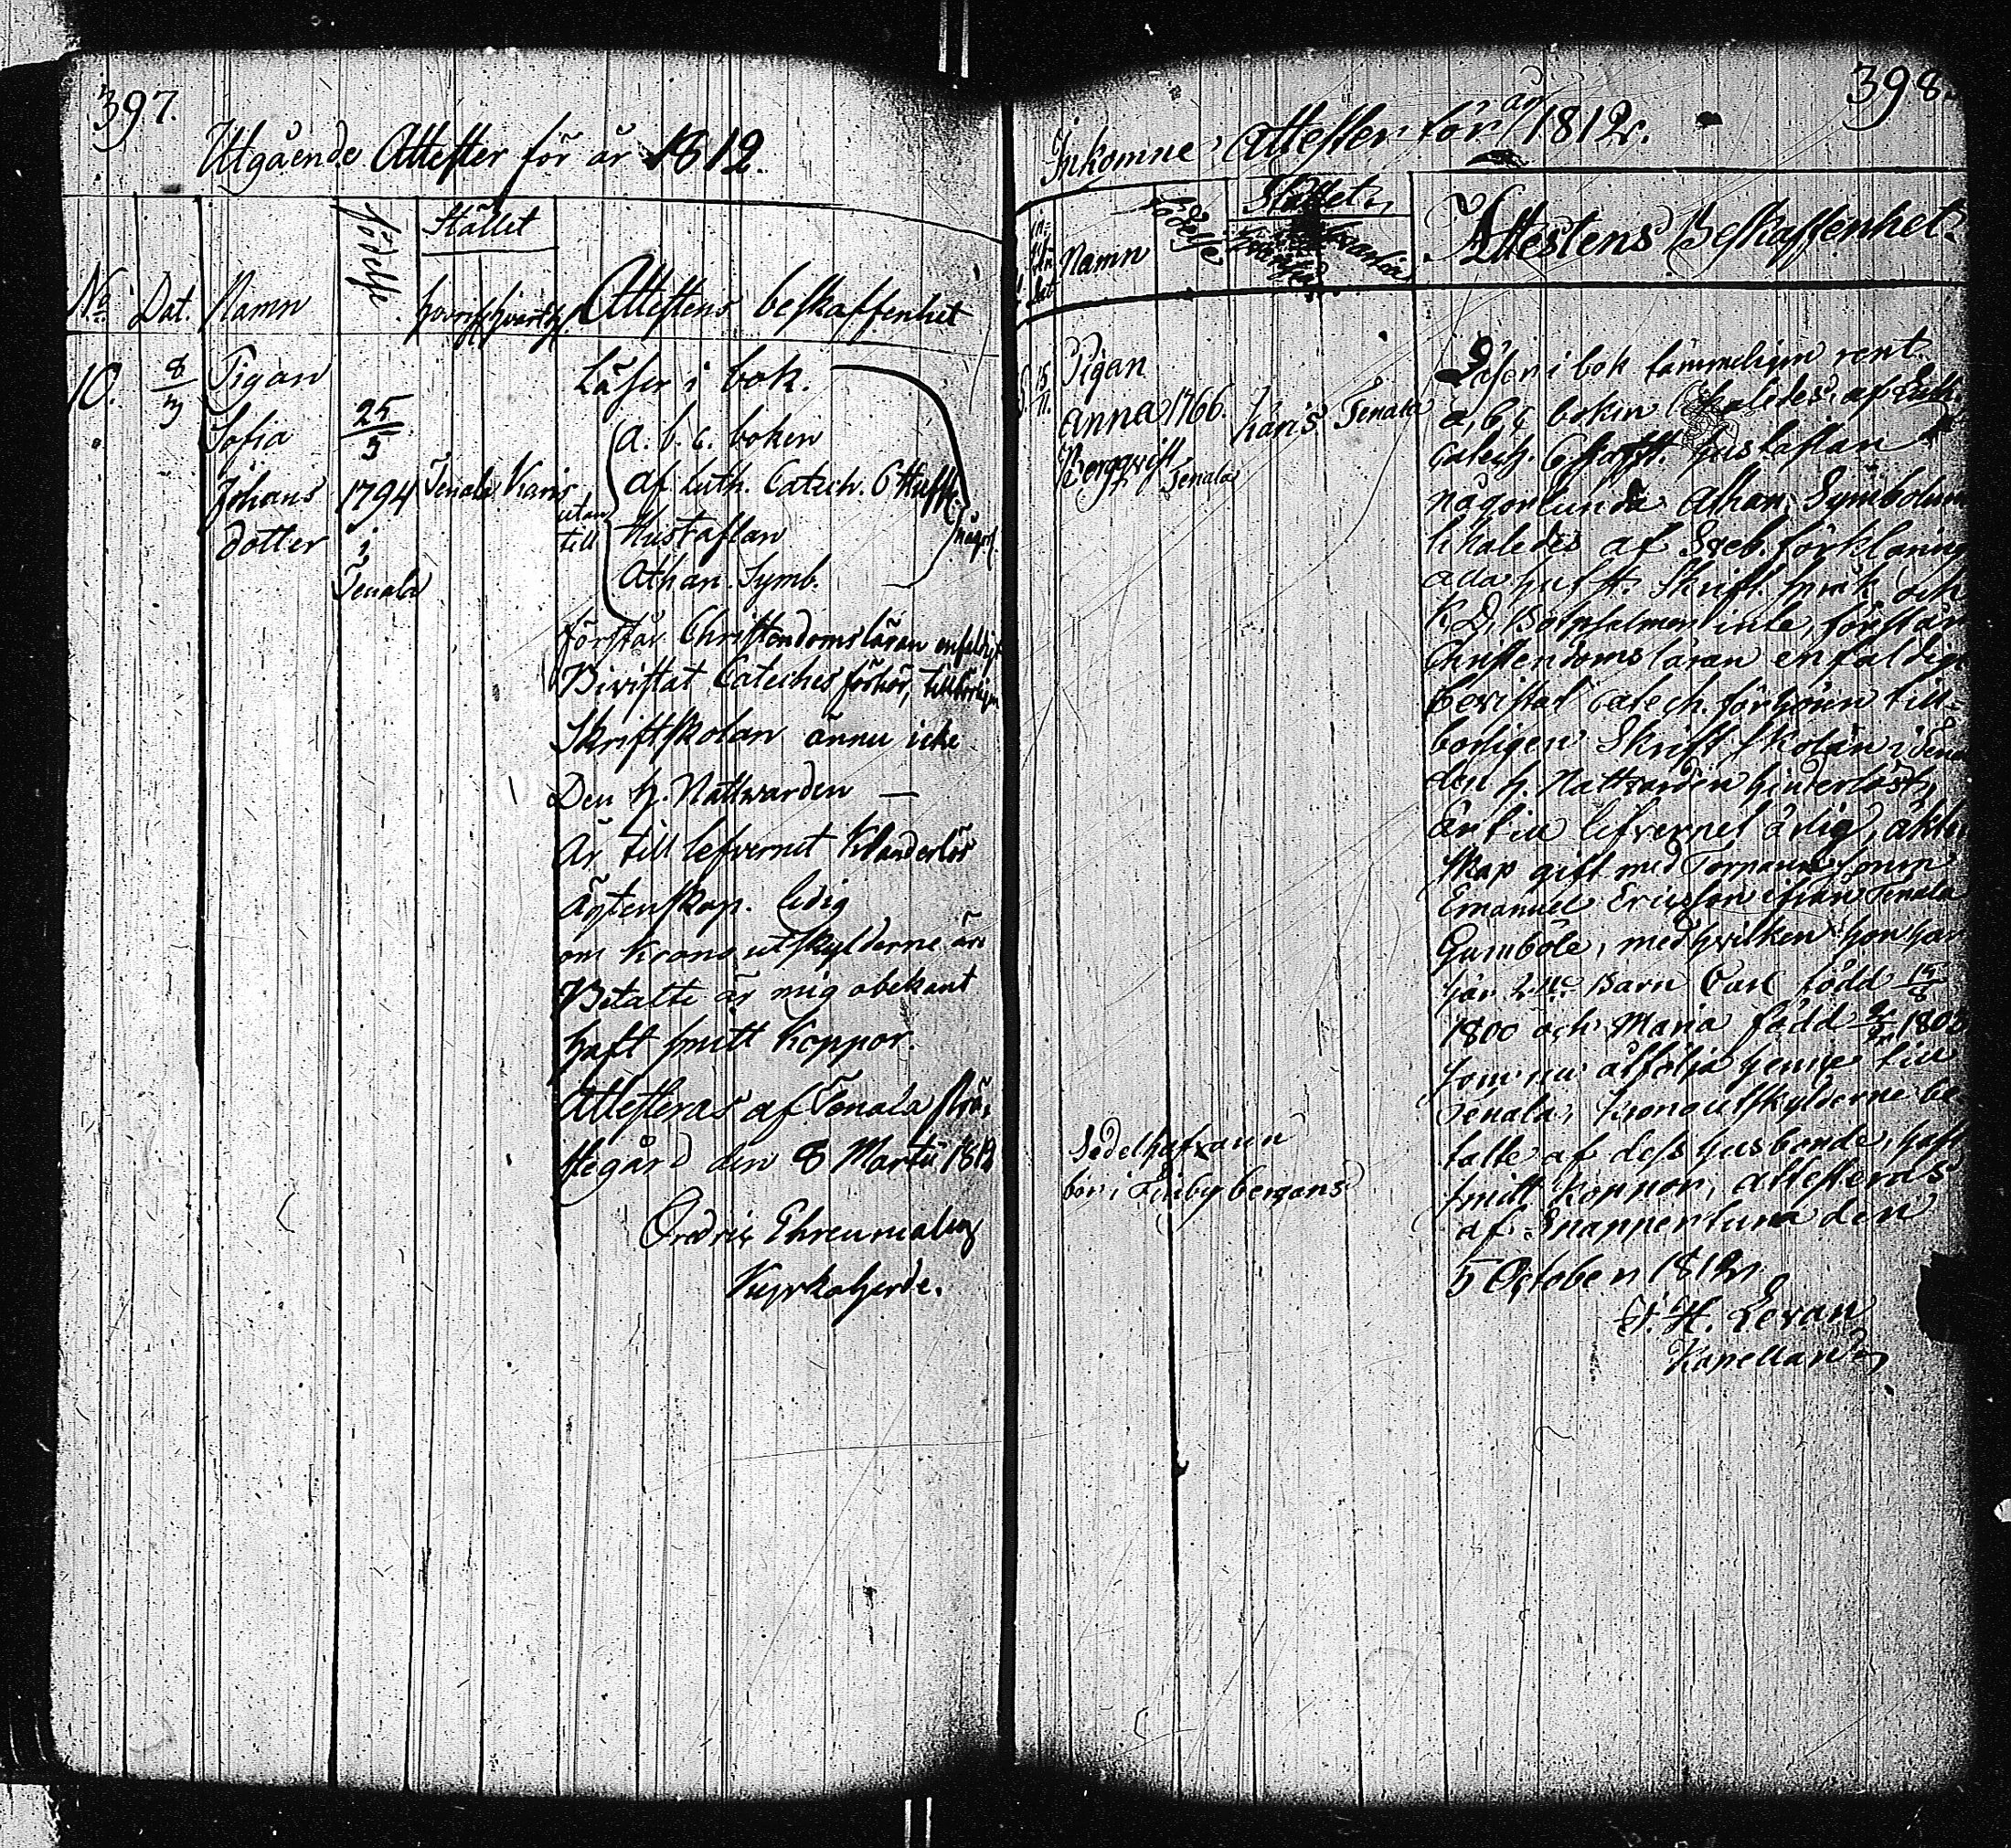 397.
Utgående Attester för år 1812.
No Dat. Namn Födelse Stället hvarifr. hvart Attestens beskaffenhet
10. 8/3 Pigan
Sofia
Johans
dotter
25/3
1794
i
Tenala
Tenala Karis
Läser i bok.
utan till
a. b. c. boken
af Luth. Catech. 6 Hufst.
Hustaflan
Athan. Symb.
någorl.
förstår Christendomsläran enfaldigt
Bivistat Cateches förhör, tillbörligen
Skriftskolan ännu icke
Den h. Nattvarden —
Är till lefvernet Klanderlös
Ägtenskap. ledig
om Krono utskylderne är
Betalte är mig obekant
haft smitt Koppor.
Attesteras af Tenala Prä-
stegård den 8 Martii 1812
Fredric Ehrenmalm
Kyrkoherde.
398.
Inkomne Attester för år 1812.
Namn Födelse Stället Attestens Beskaffenhet.
15/11. Pigan
Anna
Bergqvist
1766.
Tenala
Karis Tenala
Sedelhafvarin
bor i Finby bergans
Läser i bok tämmeligen rent
a, b, c boken likaledes af Luth.
Catech. 6 hufst. hustaflan
någorlunda Athan. Symbolum
likaledes af Sveb. förklaring
alla hufst. Skrift. språk och
K. D. Botpsalmer inte, förstår
Christendomsläran enfaldigt
bevistat catech. förhören till-
börligen Skriftskolan i Tena
den h. Nattvarden hinderlöst,
är till lefvernet ärlig, äkten
skap gift med Torparesonen
Emanuel Ericsson ifrån Tenala
Gumböle, med hvilken hon har
här 2ne Barn Carl född 15/8
1800 och Maria född 1803
som nu åtfölja henne till
Tenala, Kronoutskylderne be
talte af dess husbonde, haft
smitt Koppor, attesteras
af Snappertuna den
5 October 1812
J. H. Levan
Kapellan